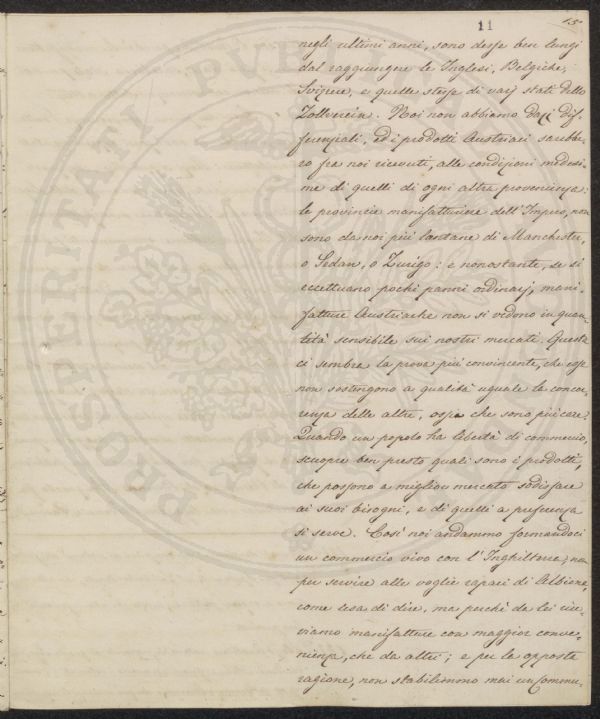 11
15
negli ultimi anni, sono desse ben lungi
dal raggiungere le Inglesi, Belgiche,
Svizzere, e quelle stesse di varj stati dello
Zollverein. Noi non abbiamo dazj dif-
ferenziali, ed i prodotti Austriaci sarebbe-
ro fra noi ricevuti alle condizioni medesi-
me di quelli di ogni altra provenienza:
le provincie manifatturiere dell'Impero, non
sono da noi più lontane di Manchester,
o Sedan, o Zurigo: e nonostante, se si
eccettuano pochi panni ordinarj, mani-
fatture Austriache non si vedono in quan-
tità sensibile sui nostri mercati. Questa
ci sembra la prova più convincente, che esse
non sostengono a qualità uguale la concor-
renza delle altre, ossia che sono più care.
Quando un popolo ha libertà di commercio,
scuopre ben presto quali sono i prodotti,
che possono a miglior mercato sodisfare
ai suoi bisogni, e di quelli a preferenza
si serve. Così noi andammo formandoci
un commercio vivo con l'Inghilterra, non
per servire alle voglie rapaci di Albione,
come usa di dire, ma perchè da lei rice-
viamo manifatture con maggior conve-
nienza, che da altri; e per le opposte
ragione, non stabilimmo mai un commer-
PROSPERITATI PVBLICAE